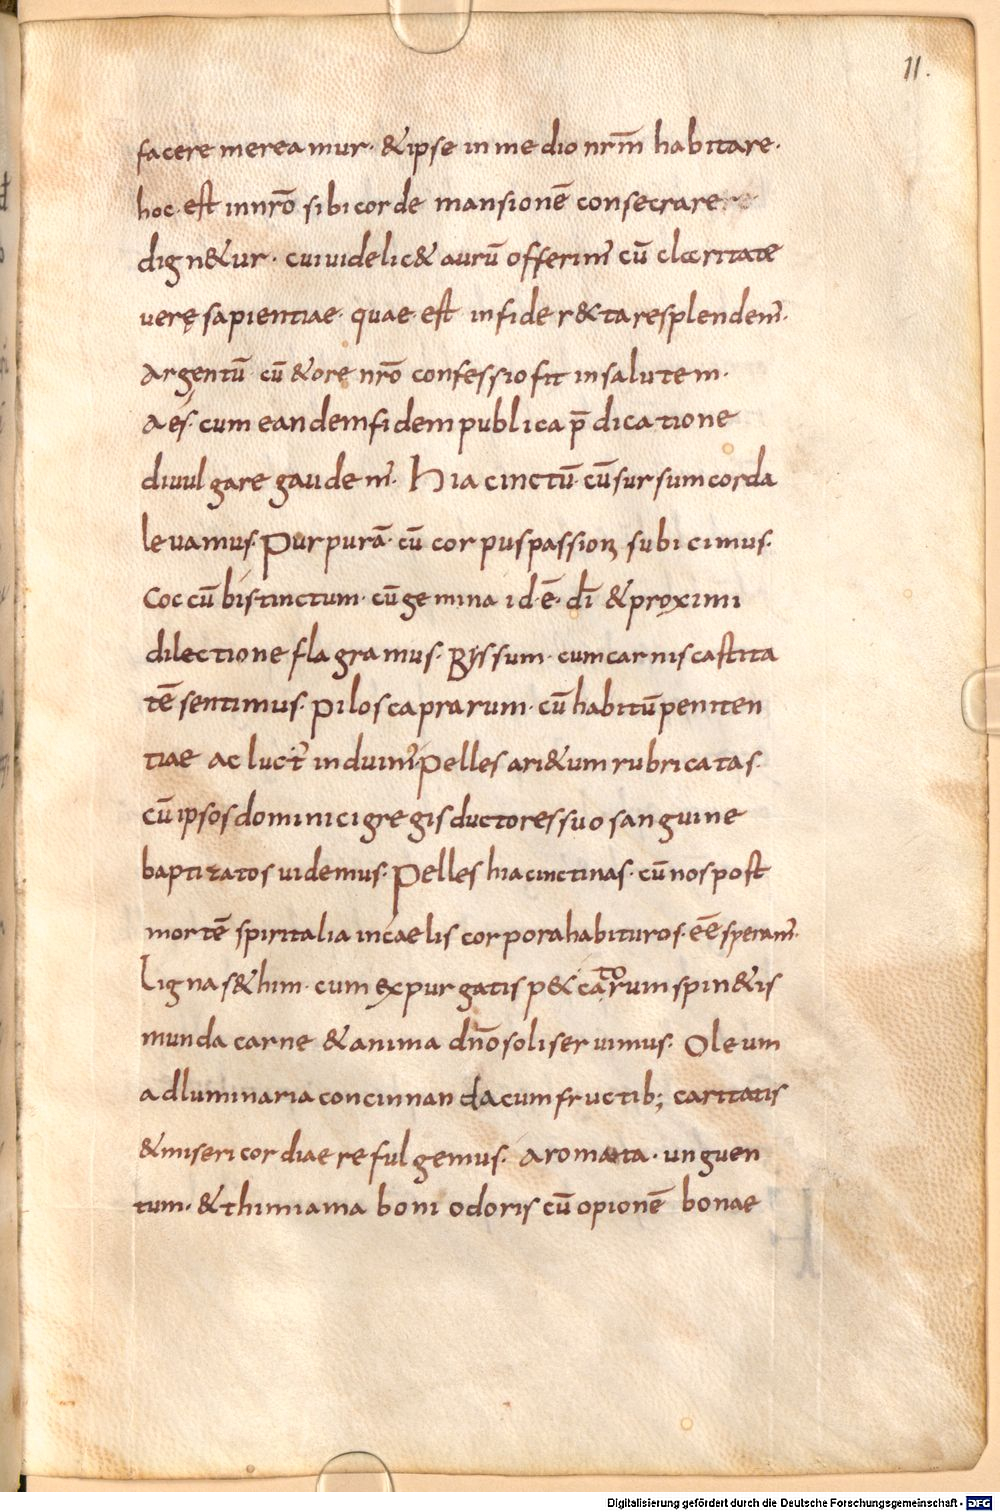 11.
facere mereamur· &ipse inmedio nr̄m̄ habitare·
hoc·est innr̄o sibicorde mansionē consecrarere
dign&ur· cuiuidelic& aurū offerim᾽ cū claritate
uerę sapientiae· quae est infide r&ta resplendem᾽·
Argentū· cū &ore nr̄o confessio fit insalutem·
Aes· cum eandem fidem publica p̄dicatione
diuulgare gaudem᾽· Hiacinctū· cū sursum corda
leuamus· Purpurā· cū corpus passioni subicimus·
Coccū bistinctum· cū gemina id·ē· dī &proximi
dilectione flagramus· Byssum· cum carnis castita
tē sentimus· Pilos caprarum· cū habitū peniten
tiae ac luct᾽ induim᾽· Pelles ari&um rubricatas·
cū ipsos dominici gregis ductores suo sanguine
baptizatos uidemus· Pelles hiacinctinas· cū nos post
mortē spiritalia incaelis corpora habituros·ēē speram᾽·
Ligna s&him· cum expurgatis p&catorum spin&is
munda carne &anima dn̄o soli seruimus· Oleum
adluminaria concinnanda cum fructib; caritatis
&misericordiae refulgemus· aromata· unguen
tum· &thimiama boni odoris cū opionē bonae
Digitalisierung gefördert durch die Deutsche Forschungsgemeinschaft - DFG